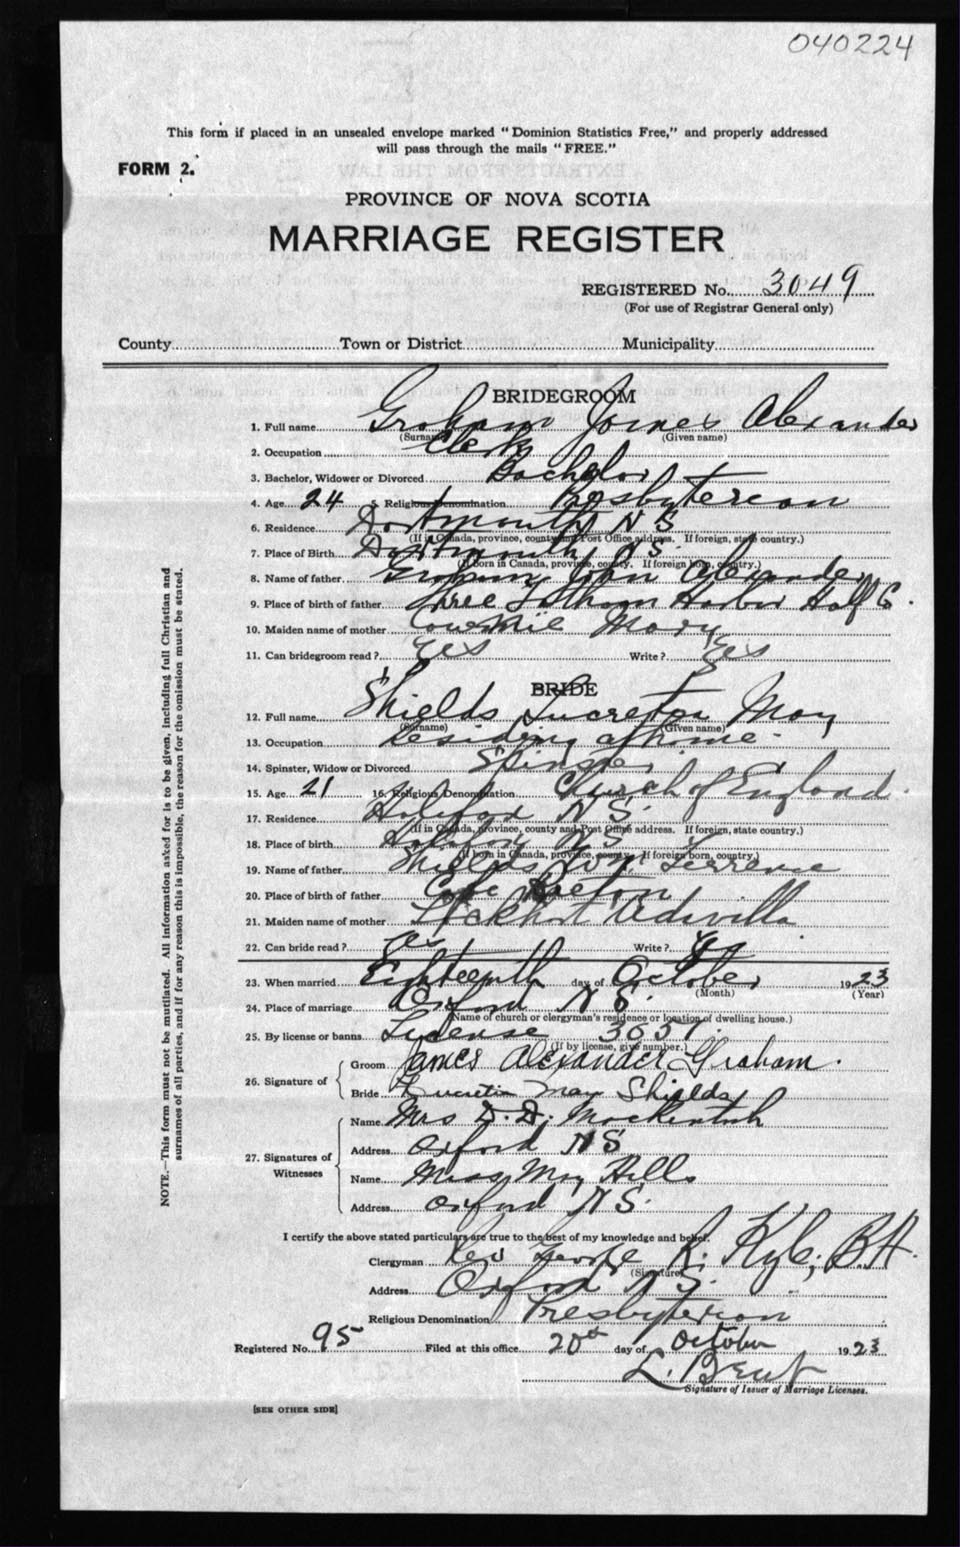 040224
This form if placed in an unsealed envelope marked "Dominion Statistics Free," and properly addressed
will pass through the mails "FREE."
FORM 2.
PROVINCE OF NOVA SCOTIA
MARRIAGE REGISTER
REGISTERED No. 3049
(For use of Registrar General only)
County Town or District Municipality
BRIDEGROOM
1. Full name Graham James Alexander
(Surname) (Given name)
2. Occupation Clerk
3. Bachelor, Widower or Divorced Bachelor
4. Age 24 5. Religious Denomination Presbyterian
6. Residence Dartmouth N S
(If in Canada, province, county and Post Office address. If foreign, state country.)
7. Place of Birth Dartmouth, N S.
(If born in Canada, province, county. If foreign born, country.)
8. Name of father Graham, John Alexander
9. Place of birth of father Three Fathom Harbor Half Co.
10. Maiden name of mother Mary
11. Can bridegroom read? Yes Write? Yes
BRIDE
12. Full name Shields Lucretia May
(Surname) (Given name)
13. Occupation Residing at home.
14. Spinster, Widow or Divorced Spinster
15. Age 21 16. Religious Denomination Church of England.
17. Residence Halifax N S.
(If in Canada, province, county and Post Office address. If foreign, state country.)
18. Place of birth Halifax N S
(If born in Canada, province, county. If foreign born, country.)
19. Name of father Shields Terrence
20. Place of birth of father Cape Breton
21. Maiden name of mother Lockhart
22. Can bride read? Yes Write? Yes
23. When married Eighteenth day of October 1923
(Month) (Year)
24. Place of marriage Oxford N S.
(Name of church or clergyman's residence or location of dwelling house.)
25. By license or banns License 3051.
(If by license, give number.)
26. Signature of
Groom James Alexander Graham.
Bride Lucretia May Shields
27. Signatures of Witnesses
Name Mrs D. D. Mackintosh
Address Oxford N S
Name Miss May Hills
Address Oxford N S.
I certify the above stated particulars are true to the best of my knowledge and belief.
Clergyman Rev George R. Kyle, B.A.
(Signature)
Address Oxford N S.
Religious Denomination Presbyterian
Registered No. 95 Filed at this office 20th day of October 1923
L. Brent
Signature of Issuer of Marriage Licenses.
[SEE OTHER SIDE]
NOTE.—This form must not be mutilated. All information asked for is to be given, including full Christian and
surnames of all parties, and if for any reason this is impossible, the reason for the omission must be stated.